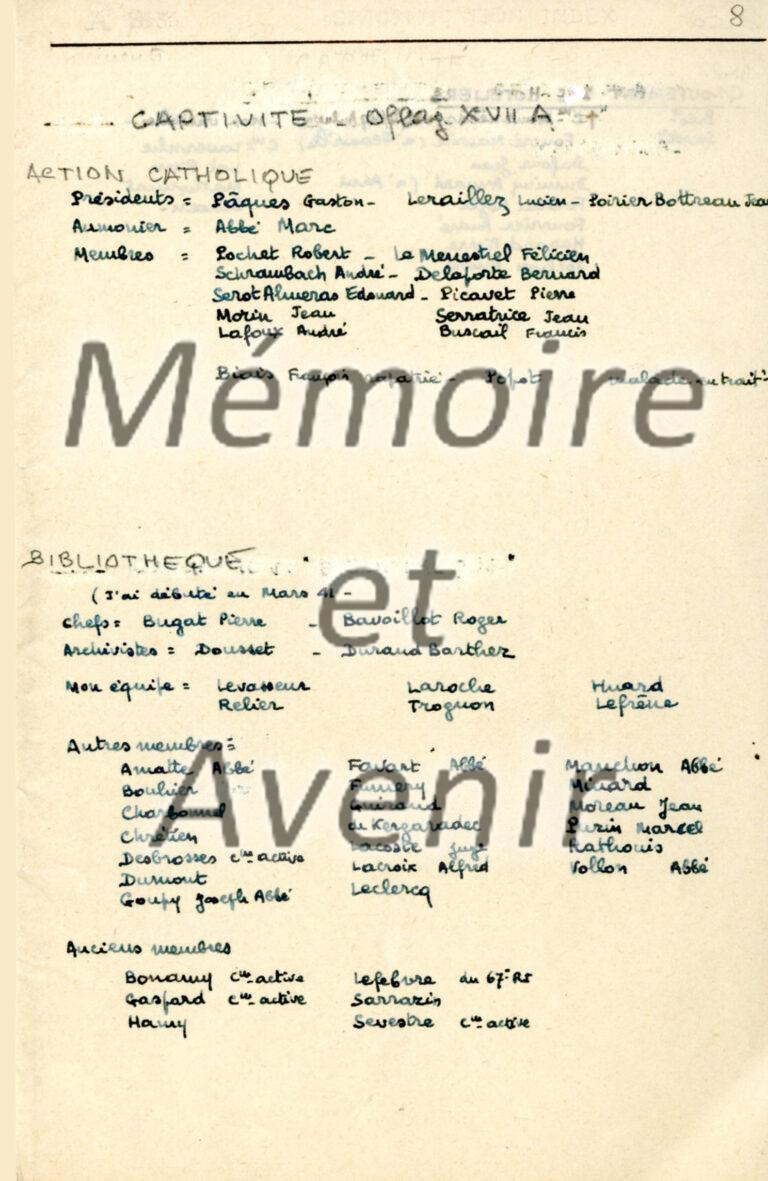 8
CAPTIVITE - Oflag XVII A
ACTION CATHOLIQUE
Présidents = Pâques Gaston - Leraillez Lucien - Poirier Bottreau Jea
Aumonier = Abbé Marc
Membres = Pochet Robert - Le Menestrel Félicien
Schrambach André - Delaporte Bernard
Serot Almeras Edouard - Picavet Pierre
Morin Jean Serratrice Jean
Lafoux André Buscail Francis
Biais François rapatrié - Popot malade en trait
Mémoire
BIBLIOTHEQUE
et
(J'ai débuté en Mars 41 -
Chefs = Bugat Pierre - Bavoillot Roger
Archivistes = Dousset - Durand Barthez
Mon équipe = Levasseur Laroche Huard
Relier Trognon Lefrêne
Autres membres =
Amatte Abbé Favart Abbé Manchon Abbé
Avenir
Bouhier Fumery Minard
Charbonnel Guiraud Moreau Jean
Chrétien de Kergaradec Puzin Marcel
Desbrosses Cne active Lacoste Rathouis
Dumont Lacroix Alfred Vollon Abbé
Goupy Joseph Abbé Leclercq
Anciens membres
Bonamy Cne active Lefebvre du 67e RI
Gaspard Cne active Sarrazin
Hamy Sevestre Cne active